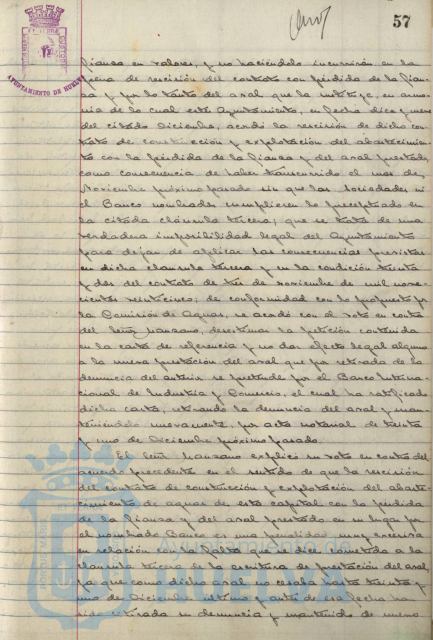 57
AYUNTAMIENTO DE HUELVA
fianza en valores, y no haciéndolo incurrirán en la
pena de rescisión del contrato con pérdida de la fian-
za y por lo tanto del aval que la sustituye, en armo-
nia de lo cual este Ayuntamiento, en fecha diez y nueve
del citado Diciembre, acordó la rescisión de dicho con-
trato de construcción y explotación del abastecimien-
to con la pérdida de la fianza y del aval prestado,
como consecuencia de haber transcurrido el mes de
Noviembre próximo pasado sin que las Sociedades ni
el Banco nombrados cumplieren lo preceptuado en
la citada cláusula tercera, que se trata de una
verdadera imposibilidad legal del Ayuntamiento
para dejar de aplicar las consecuencias previstas
en dicha clausula tercera y en la condición treinta
y dos del contrato de tres de noviembre de mil nove-
cientos veinticinco; de conformidad con lo propuesto por
la Comisión de Aguas, se acordó con el voto en contra
del Señor Manzano, desestimar la petición contenida
en la carta de referencia y no dar efecto legal alguno
a la nueva prestación del aval que por retirada de la
denuncia del anterior se pretende por el Banco Interna-
cional de Industria y Comercio, el cual ha ratificado
dicha carta, retirando la denuncia del aval y man-
teniéndolo nuevamente, por acta notarial de treinta
y uno de Diciembre próximo pasado.
El Señor Manzano explicó su voto en contra del
acuerdo precedente en el sentido de que la rescisión
del contrato de construcción y explotación del abaste-
cimiento de aguas de esta capital con la pérdida
de la fianza y del aval prestado en su lugar por
el nombrado Banco es una penalidad muy excesiva
en relación con la falta que se dice cometida a la
clausula tercera de la escritura de prestación del aval,
ya que como dicho aval no cesaba hasta treinta y
uno de Diciembre último y antes de esa fecha ha
sido retirada su denuncia y mantenido de nuevo